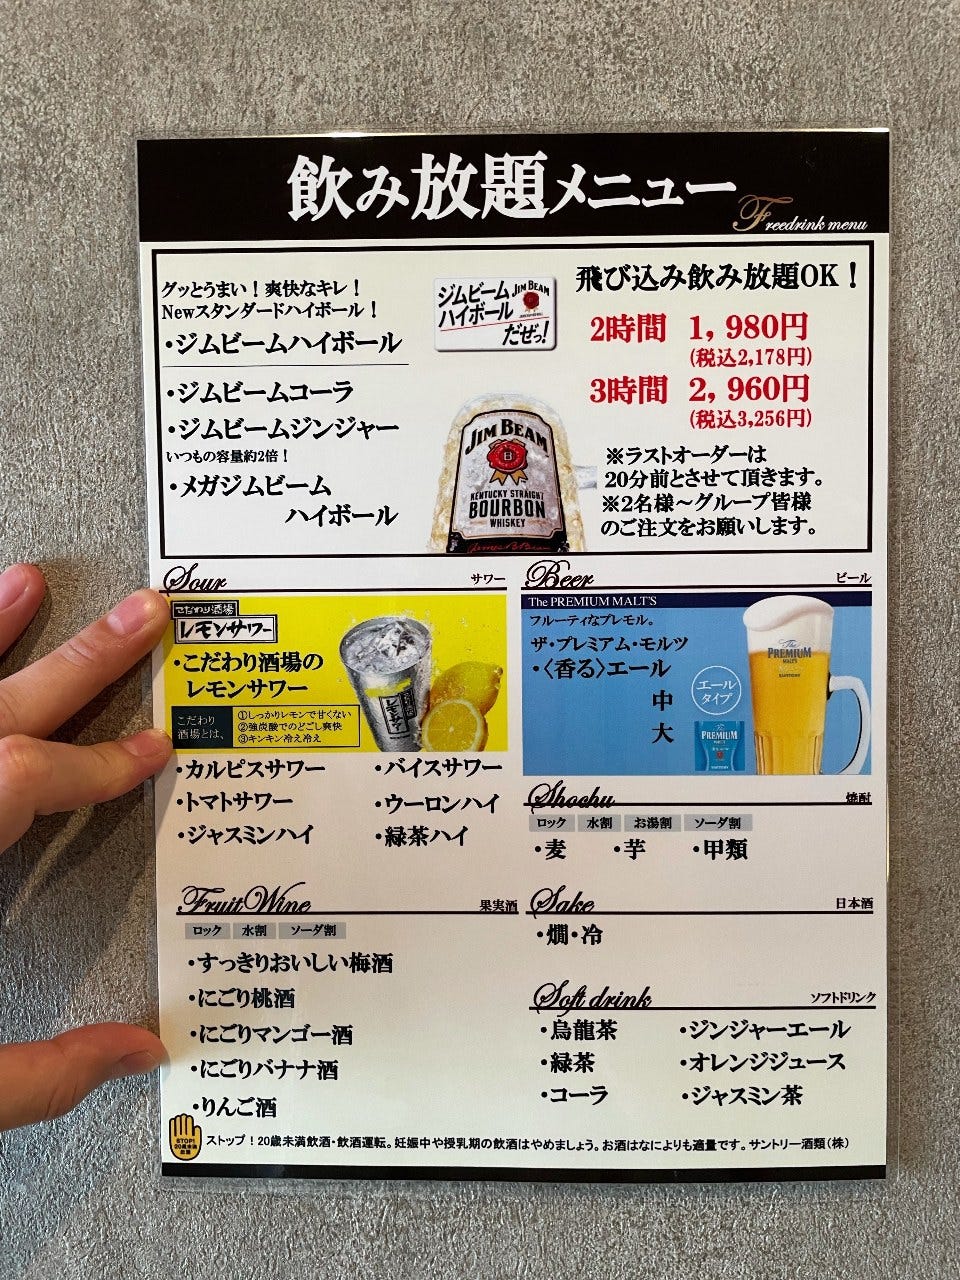 飲み放題メニュー
Freedrink menu
グッとうまい！爽快なキレ！
Newスタンダードハイボール！
・ジムビームハイボール
・ジムビームコーラ
・ジムビームジンジャー
いつもの容量約2倍！
・メガジムビーム
ハイボール
ジムビーム
ハイボール
だぜっ!
JIM BEAM
JIM BEAM
KENTUCKY STRAIGHT
BOURBON
WHISKEY
飛び込み飲み放題OK！
2時間 1,980円
(税込2,178円)
3時間 2,960円
(税込3,256円)
※ラストオーダーは
20分前とさせて頂きます。
※2名様～グループ皆様
のご注文をお願いします。
Sour サワー
こだわり酒場
レモンサワー
・こだわり酒場の
レモンサワー
こだわり
酒場とは、
①しっかりレモンで甘くない
②強炭酸でのどごし爽快
③キンキン冷え冷え
レモンサワー
・カルピスサワー ・バイスサワー
・トマトサワー ・ウーロンハイ
・ジャスミンハイ ・緑茶ハイ
Beer ビール
The PREMIUM MALT'S
フルーティなプレモル。
ザ・プレミアム・モルツ
・〈香る〉エール
中
大
エール
タイプ
The
PREMIUM
MALT'S
SUNTORY
PREMIUM
Shochu 焼酎
ロック 水割 お湯割 ソーダ割
・麦 ・芋 ・甲類
Fruit Wine 果実酒
ロック 水割 ソーダ割
・すっきりおいしい梅酒
・にごり桃酒
・にごりマンゴー酒
・にごりバナナ酒
・りんご酒
Sake 日本酒
・燗・冷
Soft drink ソフトドリンク
・烏龍茶 ・ジンジャーエール
・緑茶 ・オレンジジュース
・コーラ ・ジャスミン茶
STOP!
20歳未満
飲酒
ストップ！20歳未満飲酒・飲酒運転。妊娠中や授乳期の飲酒はやめましょう。お酒はなによりも適量です。サントリー酒類（株）